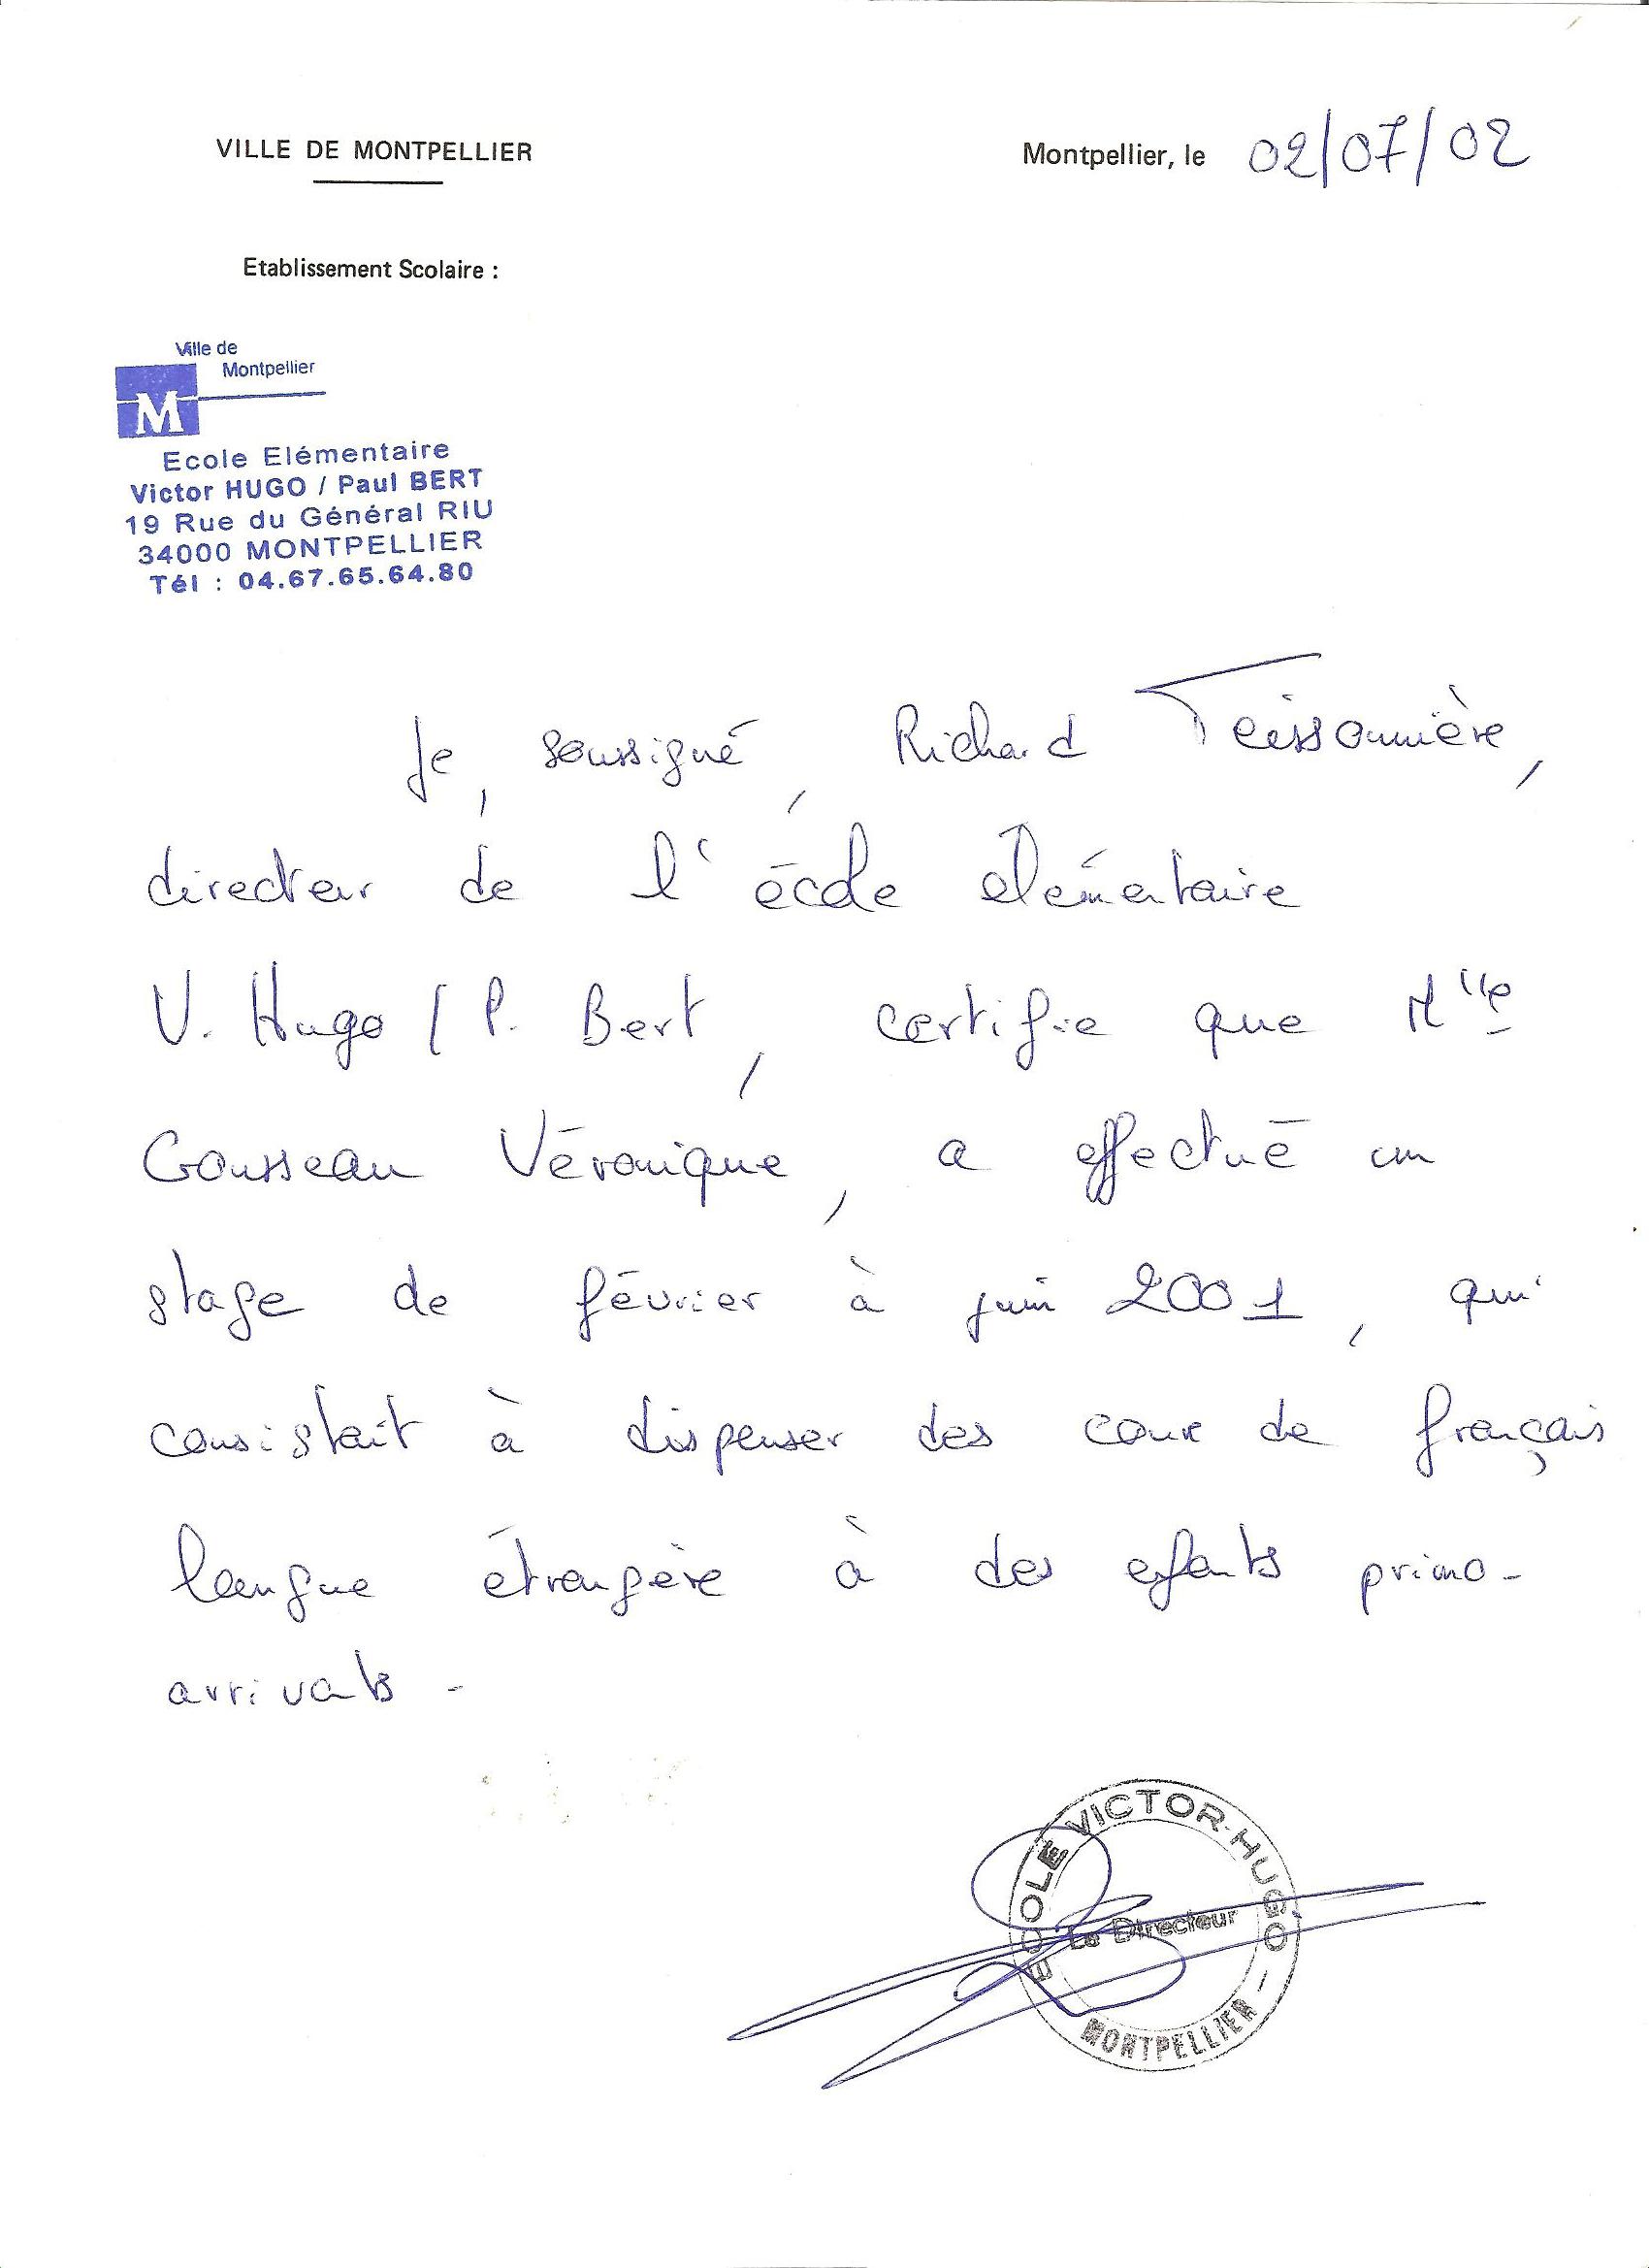 VILLE DE MONTPELLIER
Montpellier, le 02/07/02
Etablissement Scolaire :
Ville de
Montpellier
M
Ecole Elémentaire
Victor HUGO / Paul BERT
19 Rue du Général RIU
34000 MONTPELLIER
Tél : 04.67.65.64.80
Je, soussigné, Richard Teissonnière,
directeur de l'école élémentaire
V. Hugo / P. Bert, certifie que Mlle
Gousseau Véronique, a effectué un
stage de février à juin 2001, qui
consistait à dispenser des cours de français
langue étrangère à des enfants primo-
arrivants -
ECOLE VICTOR-HUGO
Le Directeur
MONTPELLIER -